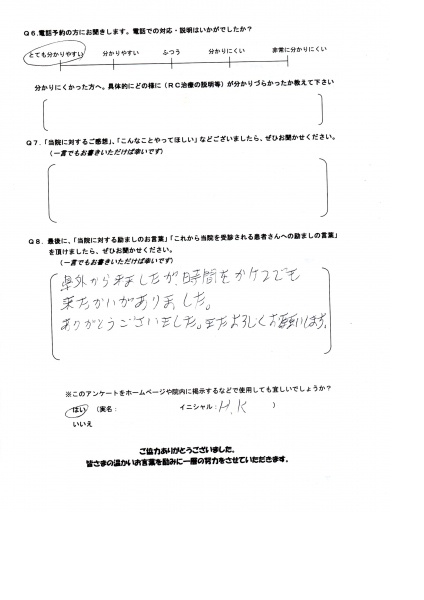 Q6.電話予約の方にお聞きします。電話での対応・説明はいかがでしたか?
とても分かりやすい 分かりやすい ふつう 分かりにくい 非常に分かりにくい
分かりにくかった方へ。具体的にどの様に(RC治療の説明等)が分かりづらかったか教えて下さい
Q7.「当院に対するご感想」、「こんなことやってほしい」などございましたら、ぜひお聞かせください。
(一言でもお書きいただけば幸いです)
Q8.最後に、「当院に対する励ましのお言葉」「これから当院を受診される患者さんへの励ましの言葉」
を頂けましたら、ぜひお聞かせください。
(一言でもお書きいただけば幸いです)
県外から来ましたが、時間をかけてでも
来たかいがありました。
ありがとうございました。またよろしくお願いします。
※このアンケートをホームページや院内に掲示するなどで使用しても宜しいでしょうか?
はい (実名: イニシャル:H.K )
いいえ
ご協力ありがとうございました。
皆さまの温かいお言葉を励みに一層の努力をさせていただきます。